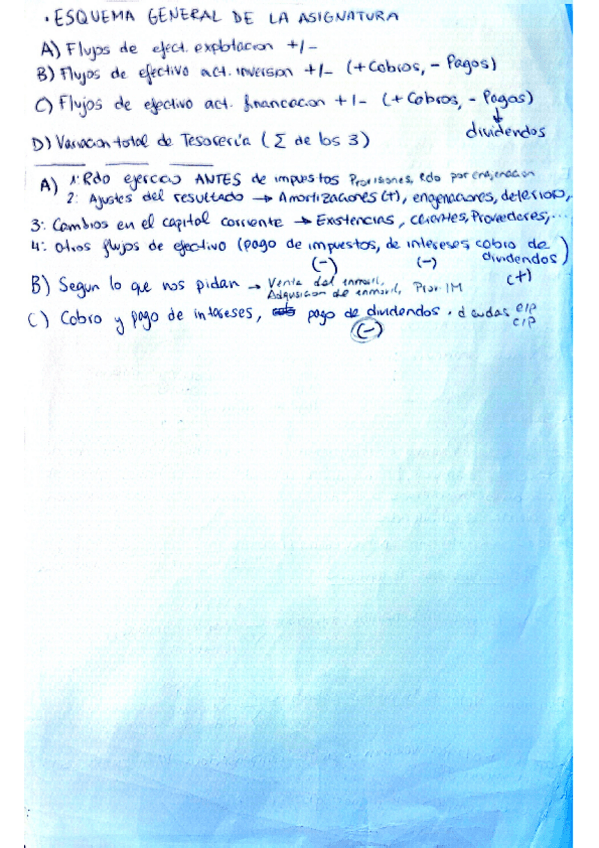 · ESQUEMA GENERAL DE LA ASIGNATURA
A) Flujos de efect. explotacion +/-
B) Flujos de efectivo act. inversion +/- (+Cobros, - Pagos)
C) Flujos de efectivo act. financacion +/- (+Cobros, - Pagos)
↓
dividendos
D) Variacion total de Tesorería (Σ de los 3)
A) 1: Rdo ejercicio ANTES de impuestos Provisiones, rdo por enajenacion
2: Ajustes del resultado → Amortizaciones (+), enajenaciones, deterioro,
3: Cambios en el capital corriente → Existencias, clientes, Proveedores, ...
4: Otros flujos de efectivo (pago de impuestos, de intereses, cobro de dividendos)
(-) (-) (+)
B) Segun lo que nos pidan → Venta del inmovil,
Adquisicion de inmovil, Prov. IM
C) Cobro y pago de intereses, pago de dividendos. deudas e/p
c/p
(-)